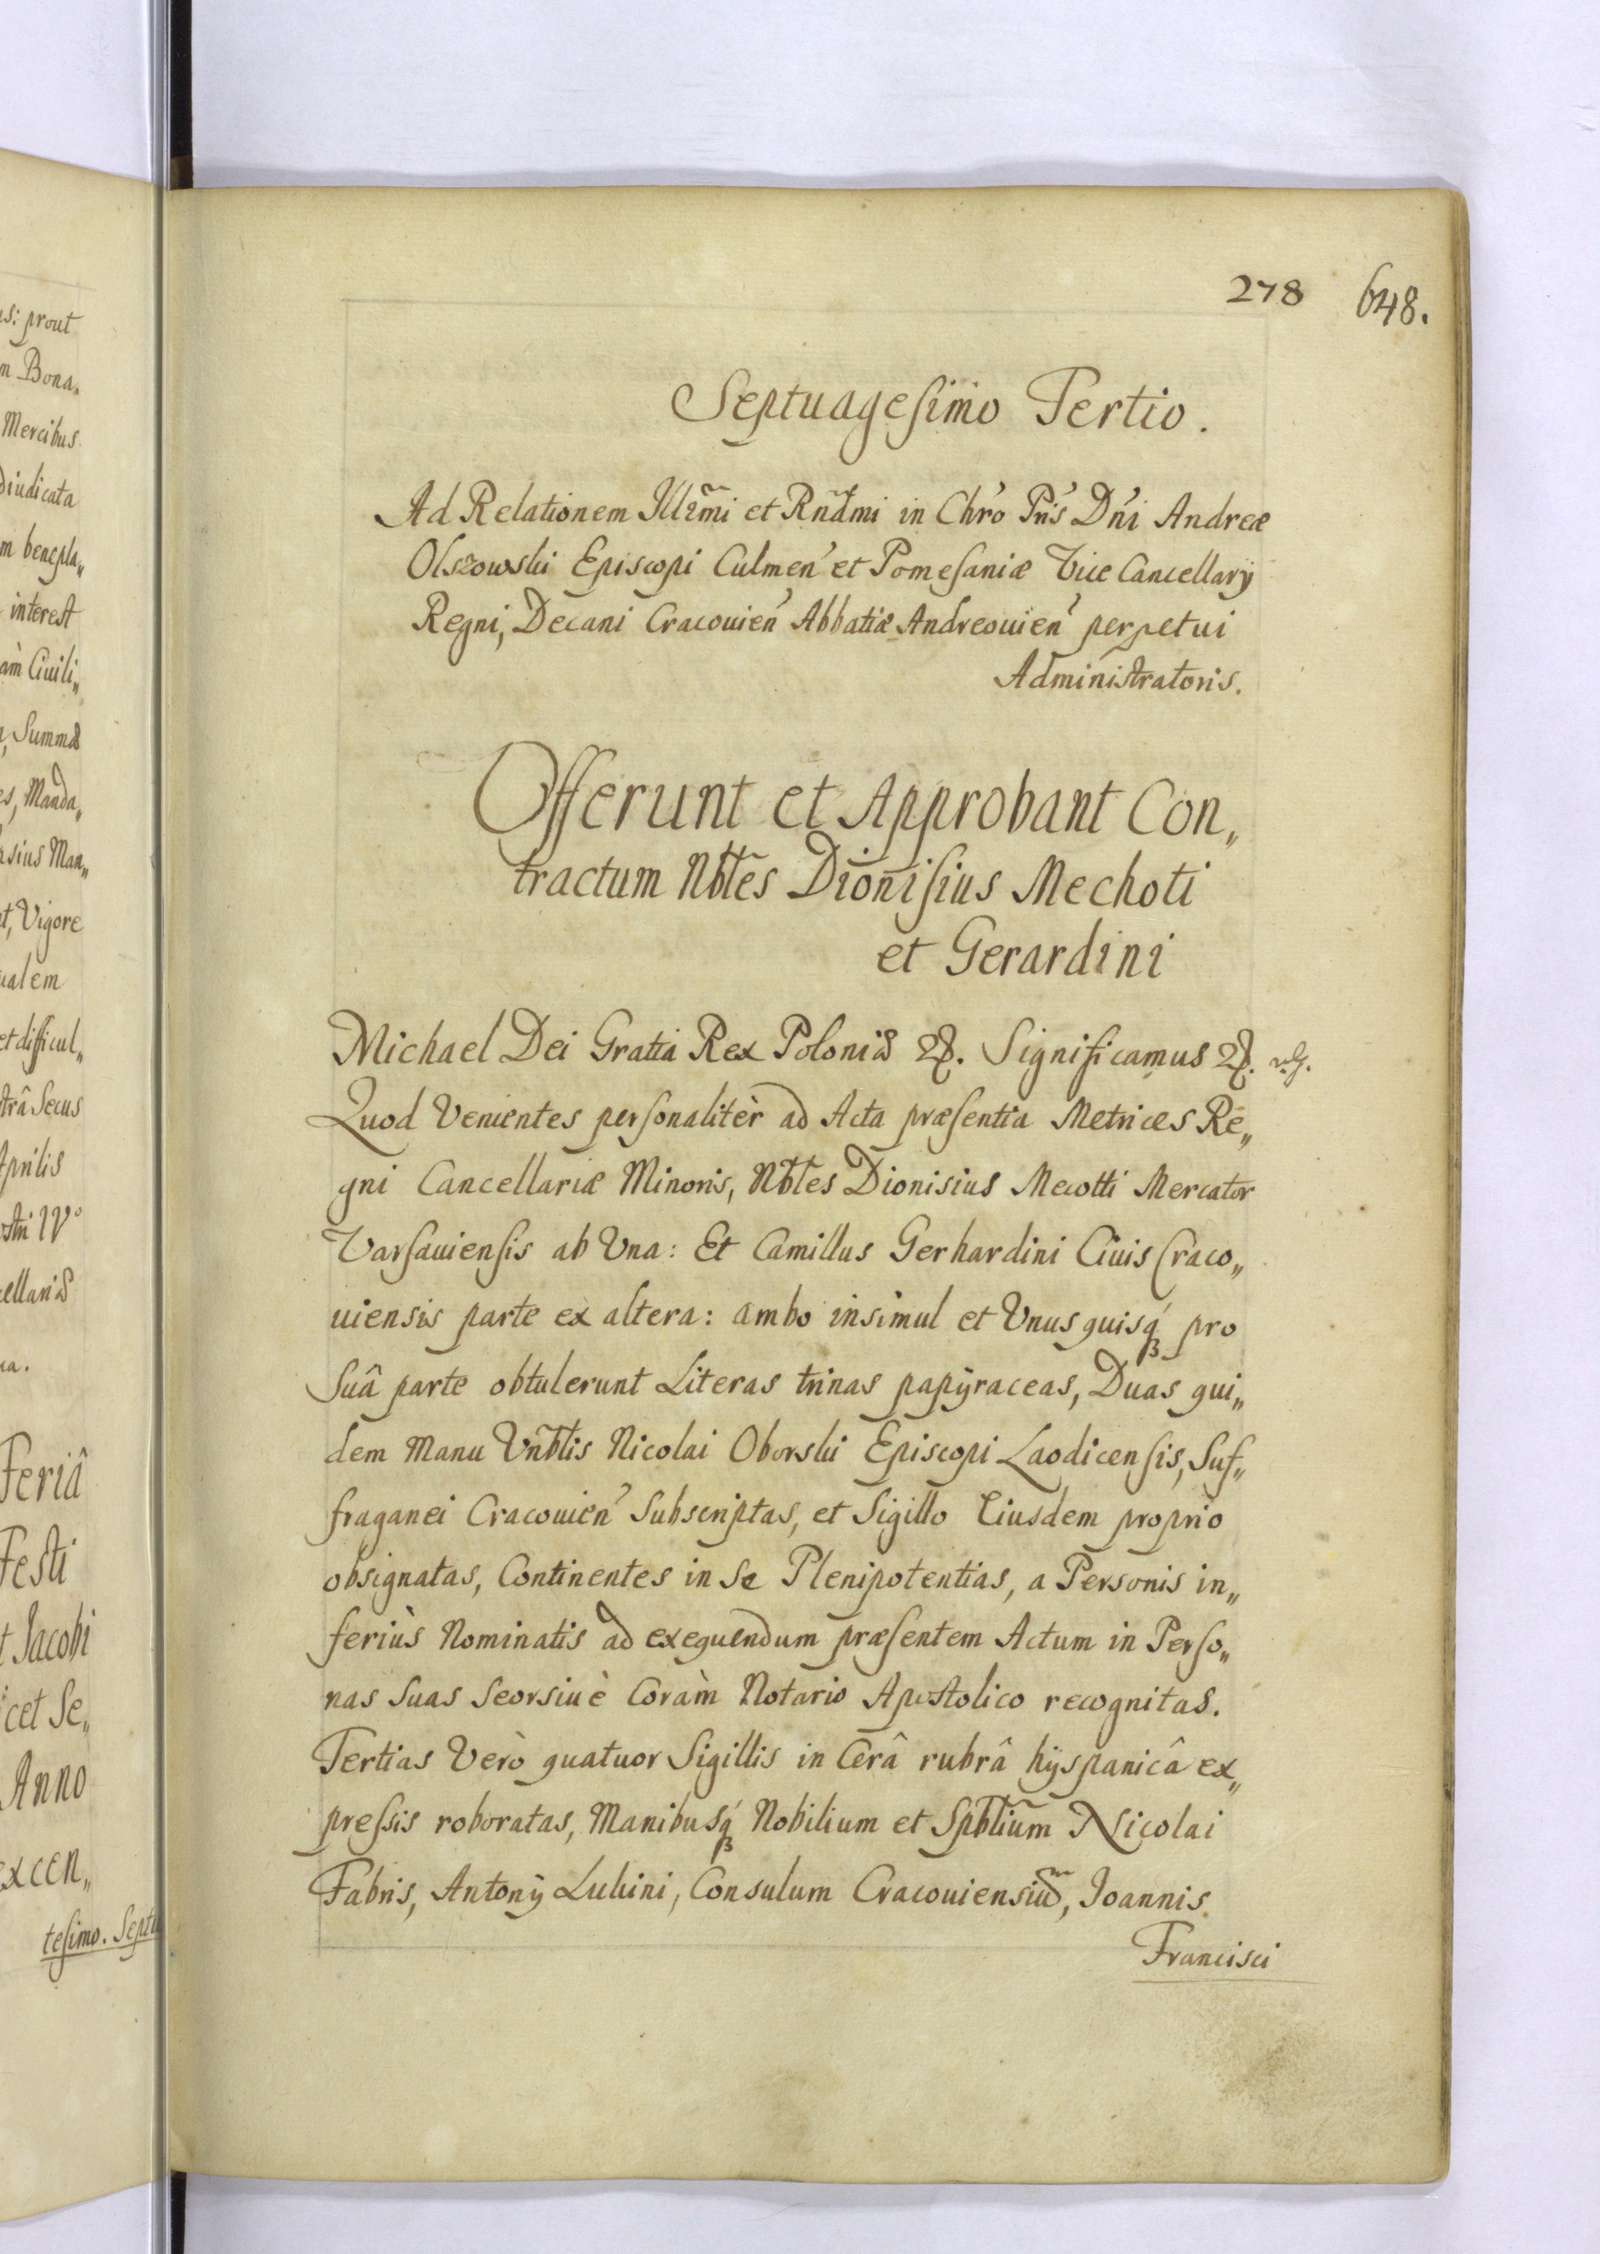 us: prout
m Bona„
Mercibus
Diudicata
m benepla„
interest
àm Ciuili„
, Summæ
es, Manda„
rsius Man„
t, Vigore
ualem
et difficul„
trâ Secus
Aprilis
ostri IVº
cellariæ
na.
Feriâ
Festi
t Jacobi
icet Se„
Anno
excen„
tesimo. Septu
278 648.
Septuagesimo Tertio.
Ad Relationem Illrm̃i et Rnd̃mi in Chr̓o Pn̓s Dn̓i Andreæ
Olszowski Episcopi Culmen̓ et Pomesaniæ Vice Cancellarÿ
Regni, Decani Cracouien̓ Abbatiæ Andreouien̓ perpetui
Administratoris.
Offerunt et Approbant Con„
tractum Nbl̃es Dionisius Mechoti
et Gerardini
Michael Dei Gratia Rex Poloniæ &. Significamus &. &.
Quod Venientes personalitèr ad Acta præsentia Metrices Re„
gni Cancellariæ Minoris, Nbl̃es Dionisius Mecotti Mercator
Varsauiensis ab Vna: Et Camillus Gerhardini Ciuis Craco„
uiensis parte ex altera: ambo insimul et Vnusquisq́ pro
Suâ parte obtulerunt Literas trinas papÿraceas, Duas qui„
dem Manu Vnbl̃is Nicolai Oborski Episcopi Laodicensis, Suf„
fraganei Cracouien̓ Subscriptas, et Sigillo Eiusdem proprio
obsignatas, Continentes in Se Plenipotentias, a Personis in„
feriùs Nominatis ad exequendum præsentem Actum in Perso„
nas Suas Seorsiuè Coràm Notario Apostolico recognitas.
Tertias Verò quatuor Sigillis in Cerâ rubrâ hÿspanicâ ex„
pressis roboratas, Manibusq́ Nobilium et Spbl̃ium Nicolai
Fabris, Antonÿ Lukini, Consulum Cracouiensium̃, Joannis
Francisci